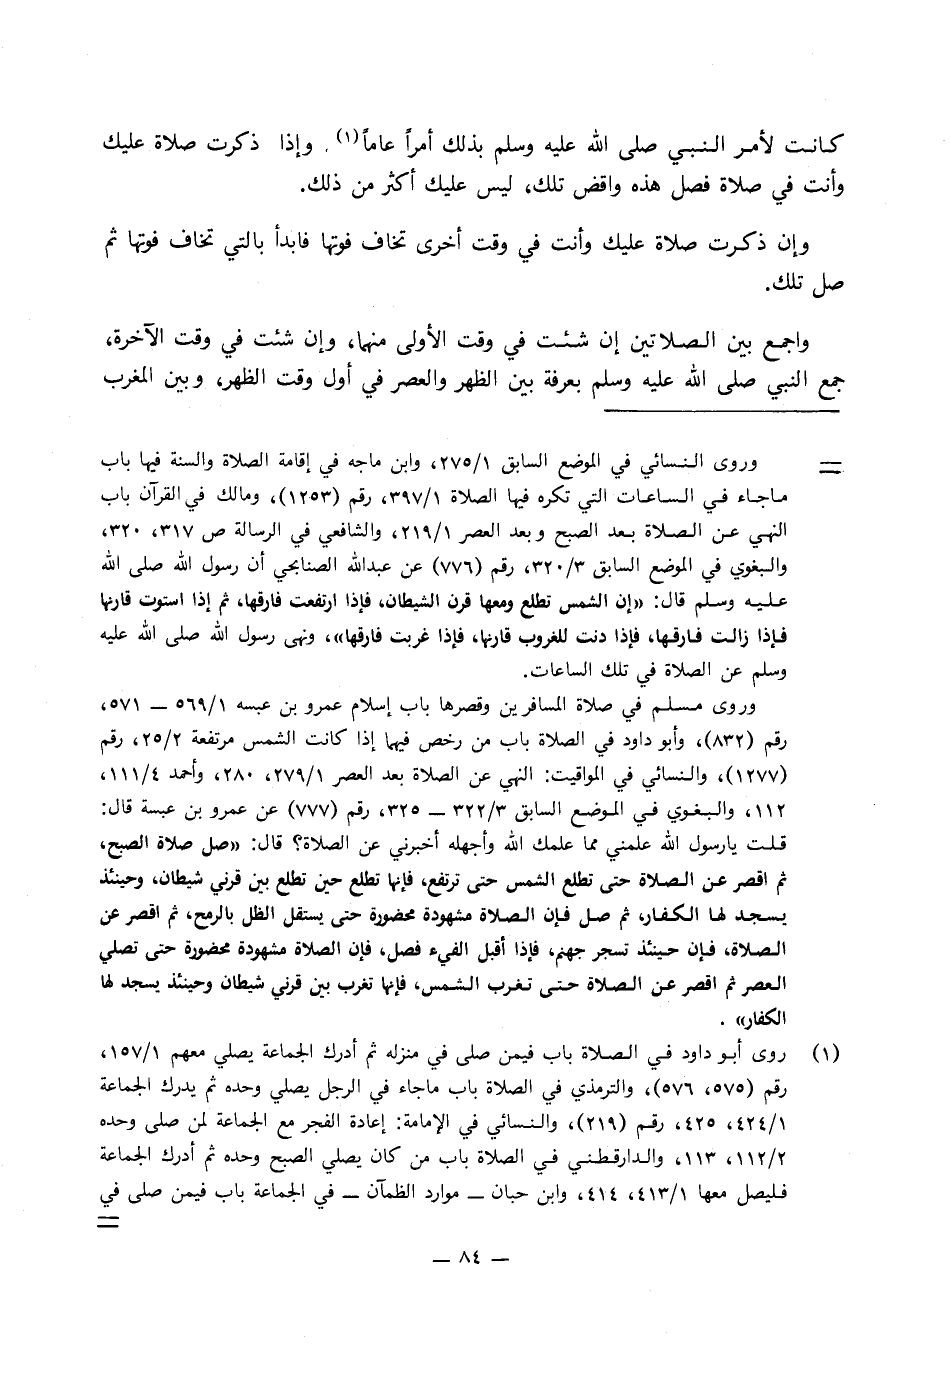 كانت لأمر النبي صلى الله عليه وسلم بذلك أمراً عاماً(١). وإذا ذكرت صلاة عليك
وأنت في صلاة فصل هذه واقض تلك، ليس عليك أكثر من ذلك.
وإن ذكرت صلاة عليك وأنت في وقت أخرى تخاف فوتها فابدأ بالتي تخاف فوتها ثم
صل تلك.
واجمع بين الصلاتين إن شئت في وقت الأولى منها، وإن شئت في وقت الآخرة،
جمع النبي صلى الله عليه وسلم بعرفة بين الظهر والعصر في أول وقت الظهر، وبين المغرب
= وروى النسائي في الموضع السابق ٢٧٥/١، وابن ماجه في إقامة الصلاة والسنة فيها باب
ماجاء في الساعات التي تكره فيها الصلاة ٣٩٧/١، رقم (١٢٥٣)، ومالك في القرآن باب
النهي عن الصلاة بعد الصبح وبعد العصر ٢١٩/١، والشافعي في الرسالة ص ٣١٧، ٣٢٠،
والبغوي في الموضع السابق ٣٢٠/٣، رقم (٧٧٦) عن عبدالله الصنابحي أن رسول الله صلى الله
عليه وسلم قال: «إن الشمس تطلع ومعها قرن الشيطان، فإذا ارتفعت فارقها، ثم إذا استوت قارنها
فإذا زالت فارقها، فإذا دنت للغروب قارنها، فإذا غربت فارقها»، ونهى رسول الله صلى الله عليه
وسلم عن الصلاة في تلك الساعات.
وروى مسلم في صلاة المسافرين وقصرها باب إسلام عمرو بن عبسه ٥٦٩/١ — ٥٧١،
رقم (٨٣٢)، وأبو داود في الصلاة باب من رخص فيها إذا كانت الشمس مرتفعة ٢٥/٢، رقم
(١٢٧٧)، والنسائي في المواقيت: النهي عن الصلاة بعد العصر ٢٧٩/١، ٢٨٠، وأحمد ١١١/٤،
١١٢، والبغوي في الموضع السابق ٣٢٢/٣ — ٣٢٥، رقم (٧٧٧) عن عمرو بن عبسة قال:
قلت يارسول الله علمني مما علمك الله وأجهله أخبرني عن الصلاة؟ قال: «صل صلاة الصبح،
ثم اقصر عن الصلاة حتى تطلع الشمس حتى ترتفع، فإنها تطلع حين تطلع بين قرني شيطان، وحينئذ
يسجد لها الكفار، ثم صل فإن الصلاة مشهودة محضورة حتى يستقل الظل بالرمح، ثم اقصر عن
الصلاة، فإن حينئذ تسجر جهنم، فإذا أقبل الفيء فصل، فإن الصلاة مشهودة محضورة حتى تصلي
العصر ثم اقصر عن الصلاة حتى تغرب الشمس، فإنها تغرب بين قرني شيطان وحينئذ يسجد لها
الكفار» .
(١) روى أبو داود في الصلاة باب فيمن صلى في منزله ثم أدرك الجماعة يصلي معهم ١٥٧/١،
رقم (٥٧٥، ٥٧٦)، والترمذي في الصلاة باب ماجاء في الرجل يصلي وحده ثم يدرك الجماعة
٤٢٤/١، ٤٢٥، رقم (٢١٩)، والنسائي في الإمامة: إعادة الفجر مع الجماعة لمن صلى وحده
١١٢/٢، ١١٣، والدارقطني في الصلاة باب من كان يصلي الصبح وحده ثم أدرك الجماعة
فليصل معها ٤١٣/١، ٤١٤، وابن حبان — موارد الظمآن — في الجماعة باب فيمن صلى في
=
— ٨٤ —